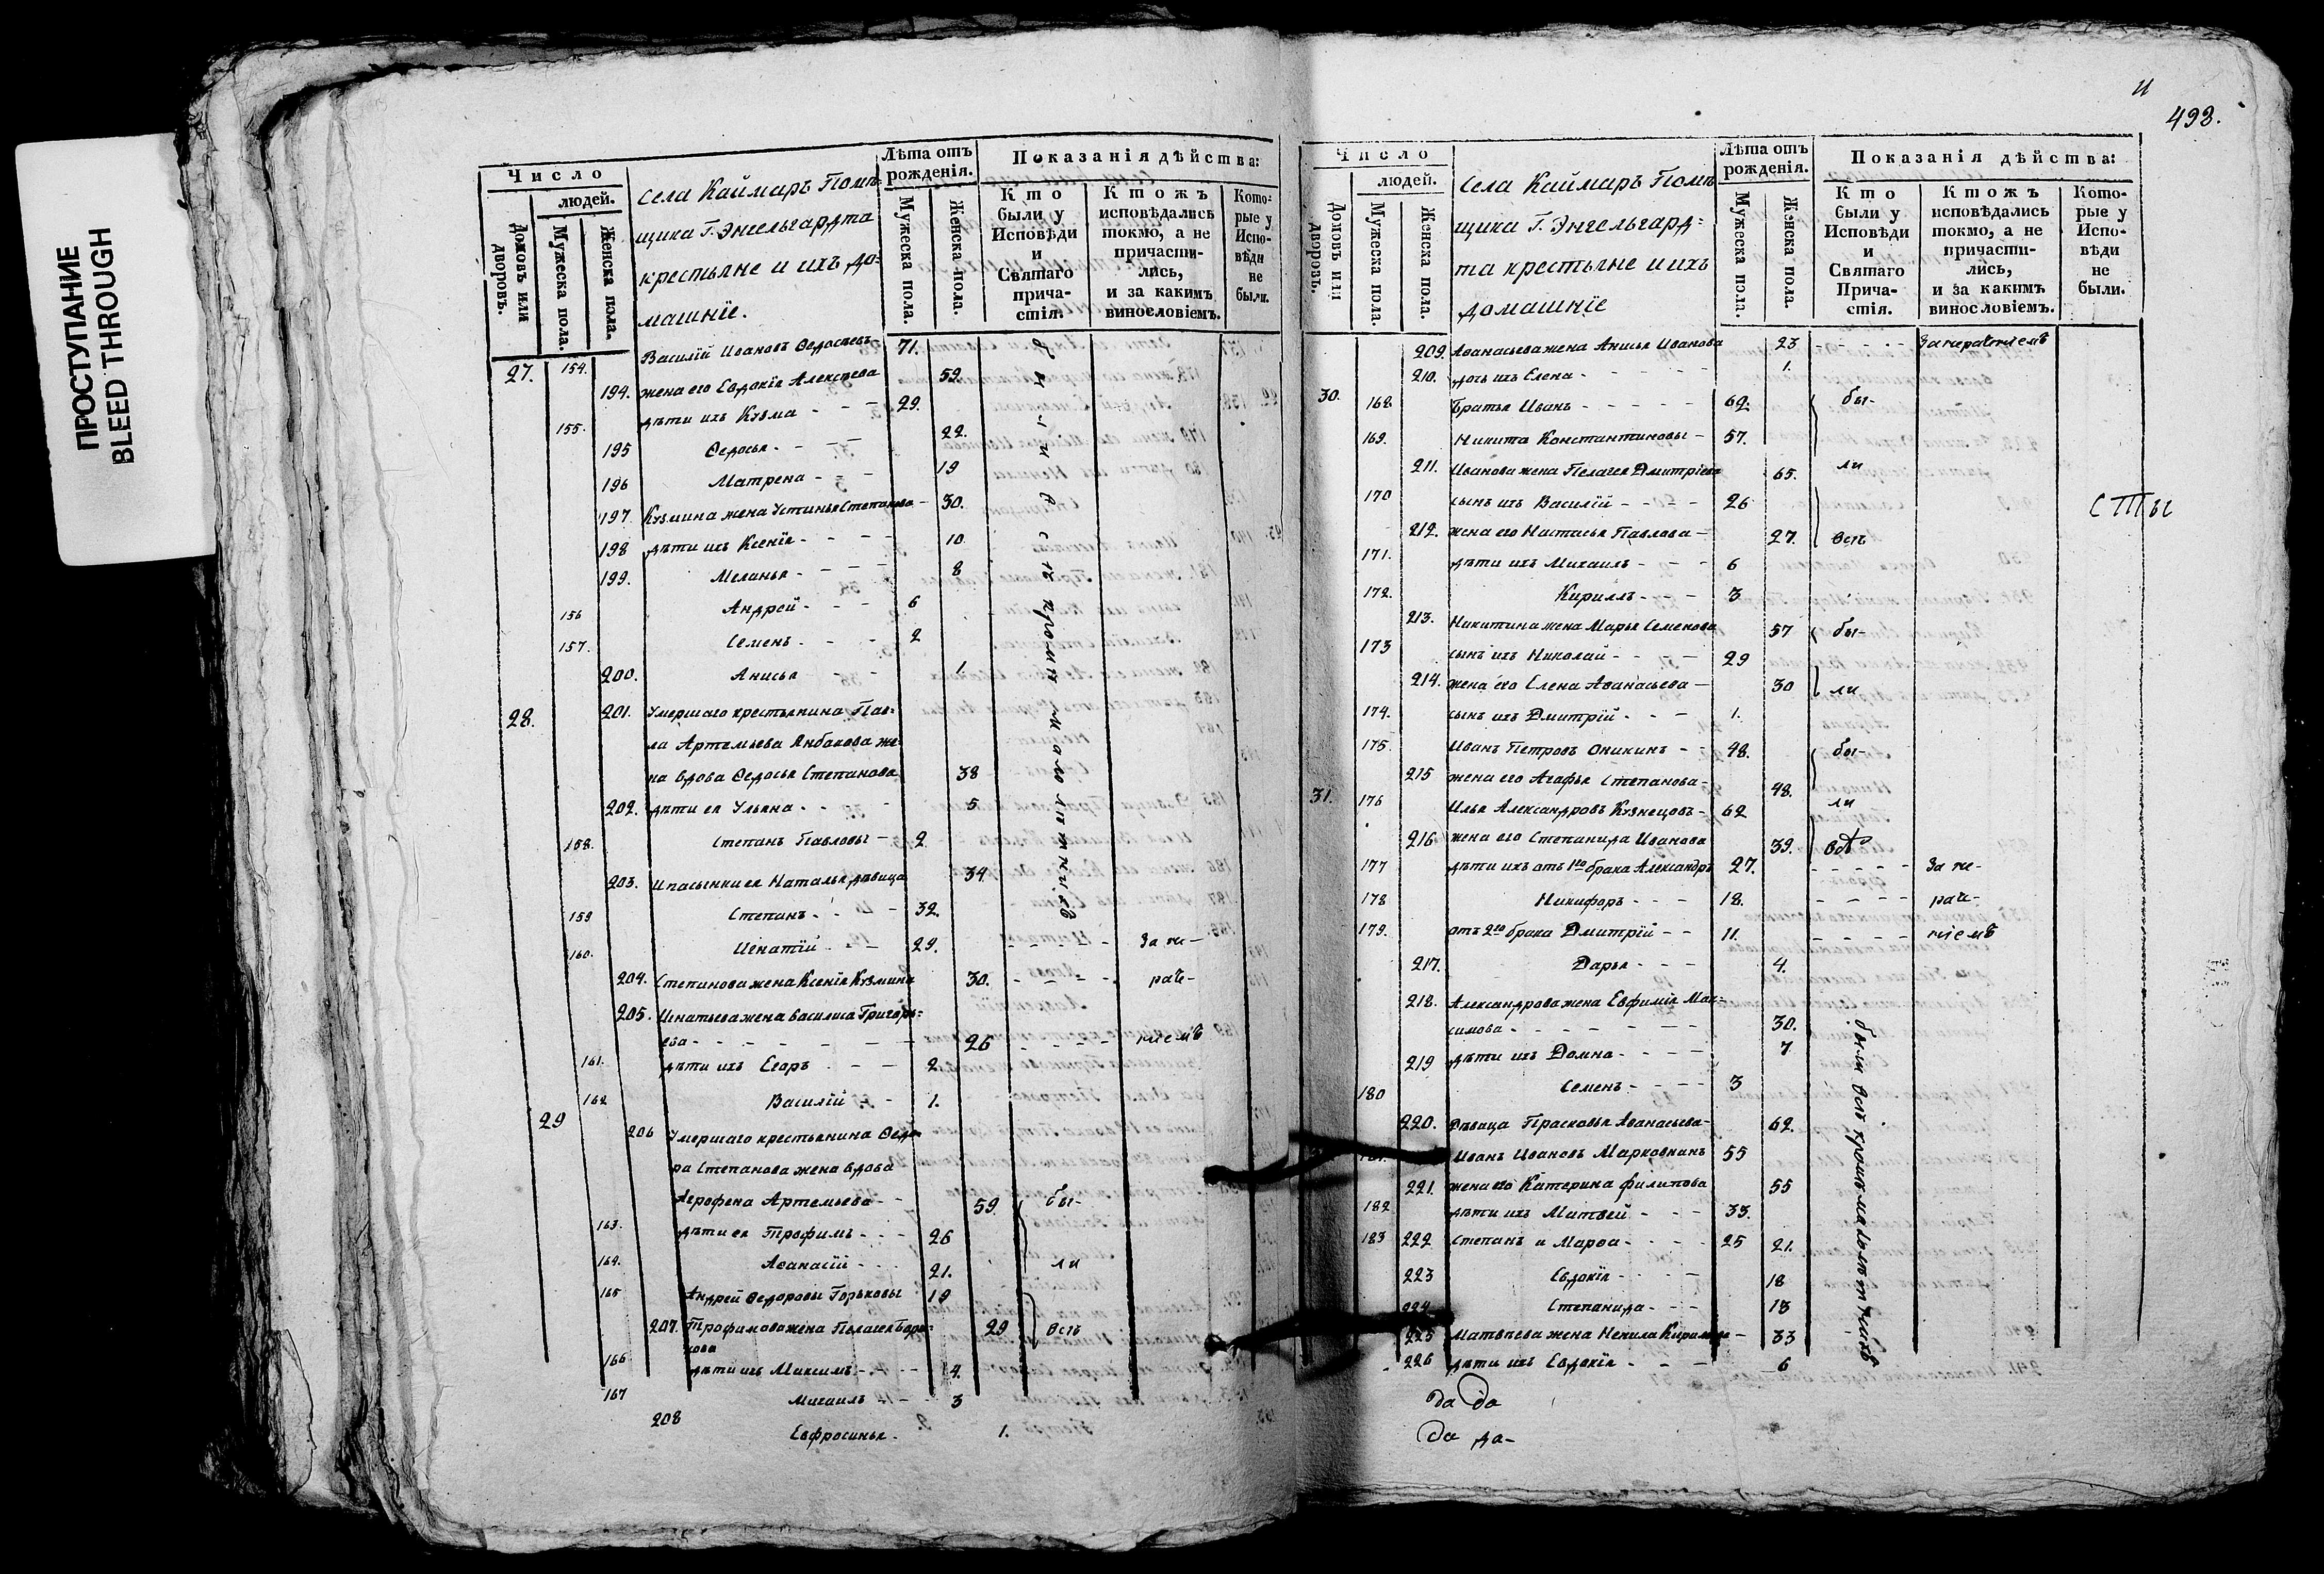 ПРОСТУПАНИЕ
BLEED THROUGH
Число
людей.
Домовъ или дворовъ.
Мужеска пола.
Женска пола.
Села Каймаръ Помѣ-
щика Г. Энгельгардта
крестьяне и ихъ до-
машніе.
Лѣта отъ рожденія.
Мужеска пола.
Женска пола.
Показанія дѣйства:
Кто были у Исповѣди и Святаго причастія.
Ктожъ исповѣдались токмо, а не причастились, и за какимъ винословіемъ.
Которые у Исповѣди не были.
27. 154. Василій Ивановъ Ѳедосѣевъ 71.
194. жена его Евдокія Алексѣева 59.
155. дѣти ихъ Кузма - - - 29.
195 Ѳедосья - - - 22.
196 Матрена - - - 19
197 Кузмина жена Устинья Степанова - 30.
198 дѣти ихъ Ксенія - - - - 10
199. Меланья - - - - 8
156 Андрей - - - 6
157. Семенъ - - - 2
200. Анисья - - 1.
28. 201. Умершаго крестьянина Пав-
ла Артемьева Янбакова же-
на вдова Ѳедосья Степанова 38
202. дѣти ея Ульяна - - - 5
158. Степанъ Павловы - 2
203. Ипасынки ея Наталья дѣвица 34
159 Степанъ - - - 32.
160. Игнатій - - 29. - - - - - За не-
204. Степанова жена Ксенія Кузмина 30. - - - - раче-
205. Игнатьева жена Василиса Григорь-
ева - - - - - - - 26 - - - - ніемъ
161. дѣти ихъ Егоръ - - - 2
162 Василій - - 1.
были всѣ кромѣ малолѣтныхъ
29 206 Умершаго крестьянина Ѳедо-
ра Степанова жена вдова
Агрофена Артемьева - - 59. бы-
163. дѣти ея Трофимъ - - - 26
164. Аѳанасій - - - 21. ли
165 Андрей Ѳедоровы Горьковы 19
207. Трофимова жена Пелагея 29 всѣ
166 дѣти ихъ Максимъ - - - 4.
167 Михаилъ - - - 3
208 Евфросинья - 1.
493.
Число
людей.
Домовъ или дворовъ.
Мужеска пола.
Женска пола.
Села Каймаръ Помѣ
щика Г. Энгельгард-
та крестьяне и ихъ
домашніе
Лѣта отъ рожденія.
Мужеска пола.
Женска пола.
Показанія дѣйства:
Кто были у Исповѣди и Святаго Причастія.
Ктожъ исповѣдались токмо, а не причастились, и за какимъ винословіемъ.
Которые у Исповѣди не были.
209 Аѳанасьева жена Анисья Иванова 23 - - - - За нераченіемъ
210. дочь ихъ Елена - - - - - 1.
30. 168. Братья Иванъ - - - - - 69. бы-
169. Никита Константиновы - 57.
211. Иванова жена Пелагея Дмитріева 65. ли
170 сынъ ихъ Василій - - - - 26
212. жена его Настасья Павлова - 27. всѣ
171. дѣти ихъ Михаилъ - - - 6
172. Кириллъ - - - 3
213. Никитина жена Марья Семенова 57 бы-
173 сынъ ихъ Николай - - - - 29
214. жена его Елена Аѳанасьева - 30 ли
174. сынъ ихъ Дмитрій - - - 1.
175. Иванъ Петровъ Оникинъ - - 48. бы-
215 жена его Агафья Степанова - 48.
31. 176 Илья Александровъ Кузнецовъ - 62 ли
216 жена его Степанида Иванова 39.
177 дѣти ихъ отъ 1го брака Александръ 27. - - - - - За не-
178 Никифоръ - - - 18. - - - - раче-
179. отъ 2го брака Дмитрій - - 11. - - - - ніемъ
217. Дарья - - - 4.
218. Александрова жена Евфимія Мак-
симова - - - - - - - 30.
219 дѣти ихъ Домна - - - - 7
180 Семенъ - - - - 3
220. Дѣвица Прасковья Аѳанасьева - 62.
Иванъ Ивановъ Марковнинъ 55
221. жена его Катерина Филипова 55
182 дѣти ихъ Матвей - - - 33.
183 222 Степанъ и Марѳа - - - - 25 21.
223 Евдокія - - - - 18
224 Степанида - - - 13
225 Матвѣева жена Ненила Кирилова - 33
226 дѣти ихъ Евдокія - - - 6
были всѣ кромѣ малолѣтныхъ
сты
да да
да да-